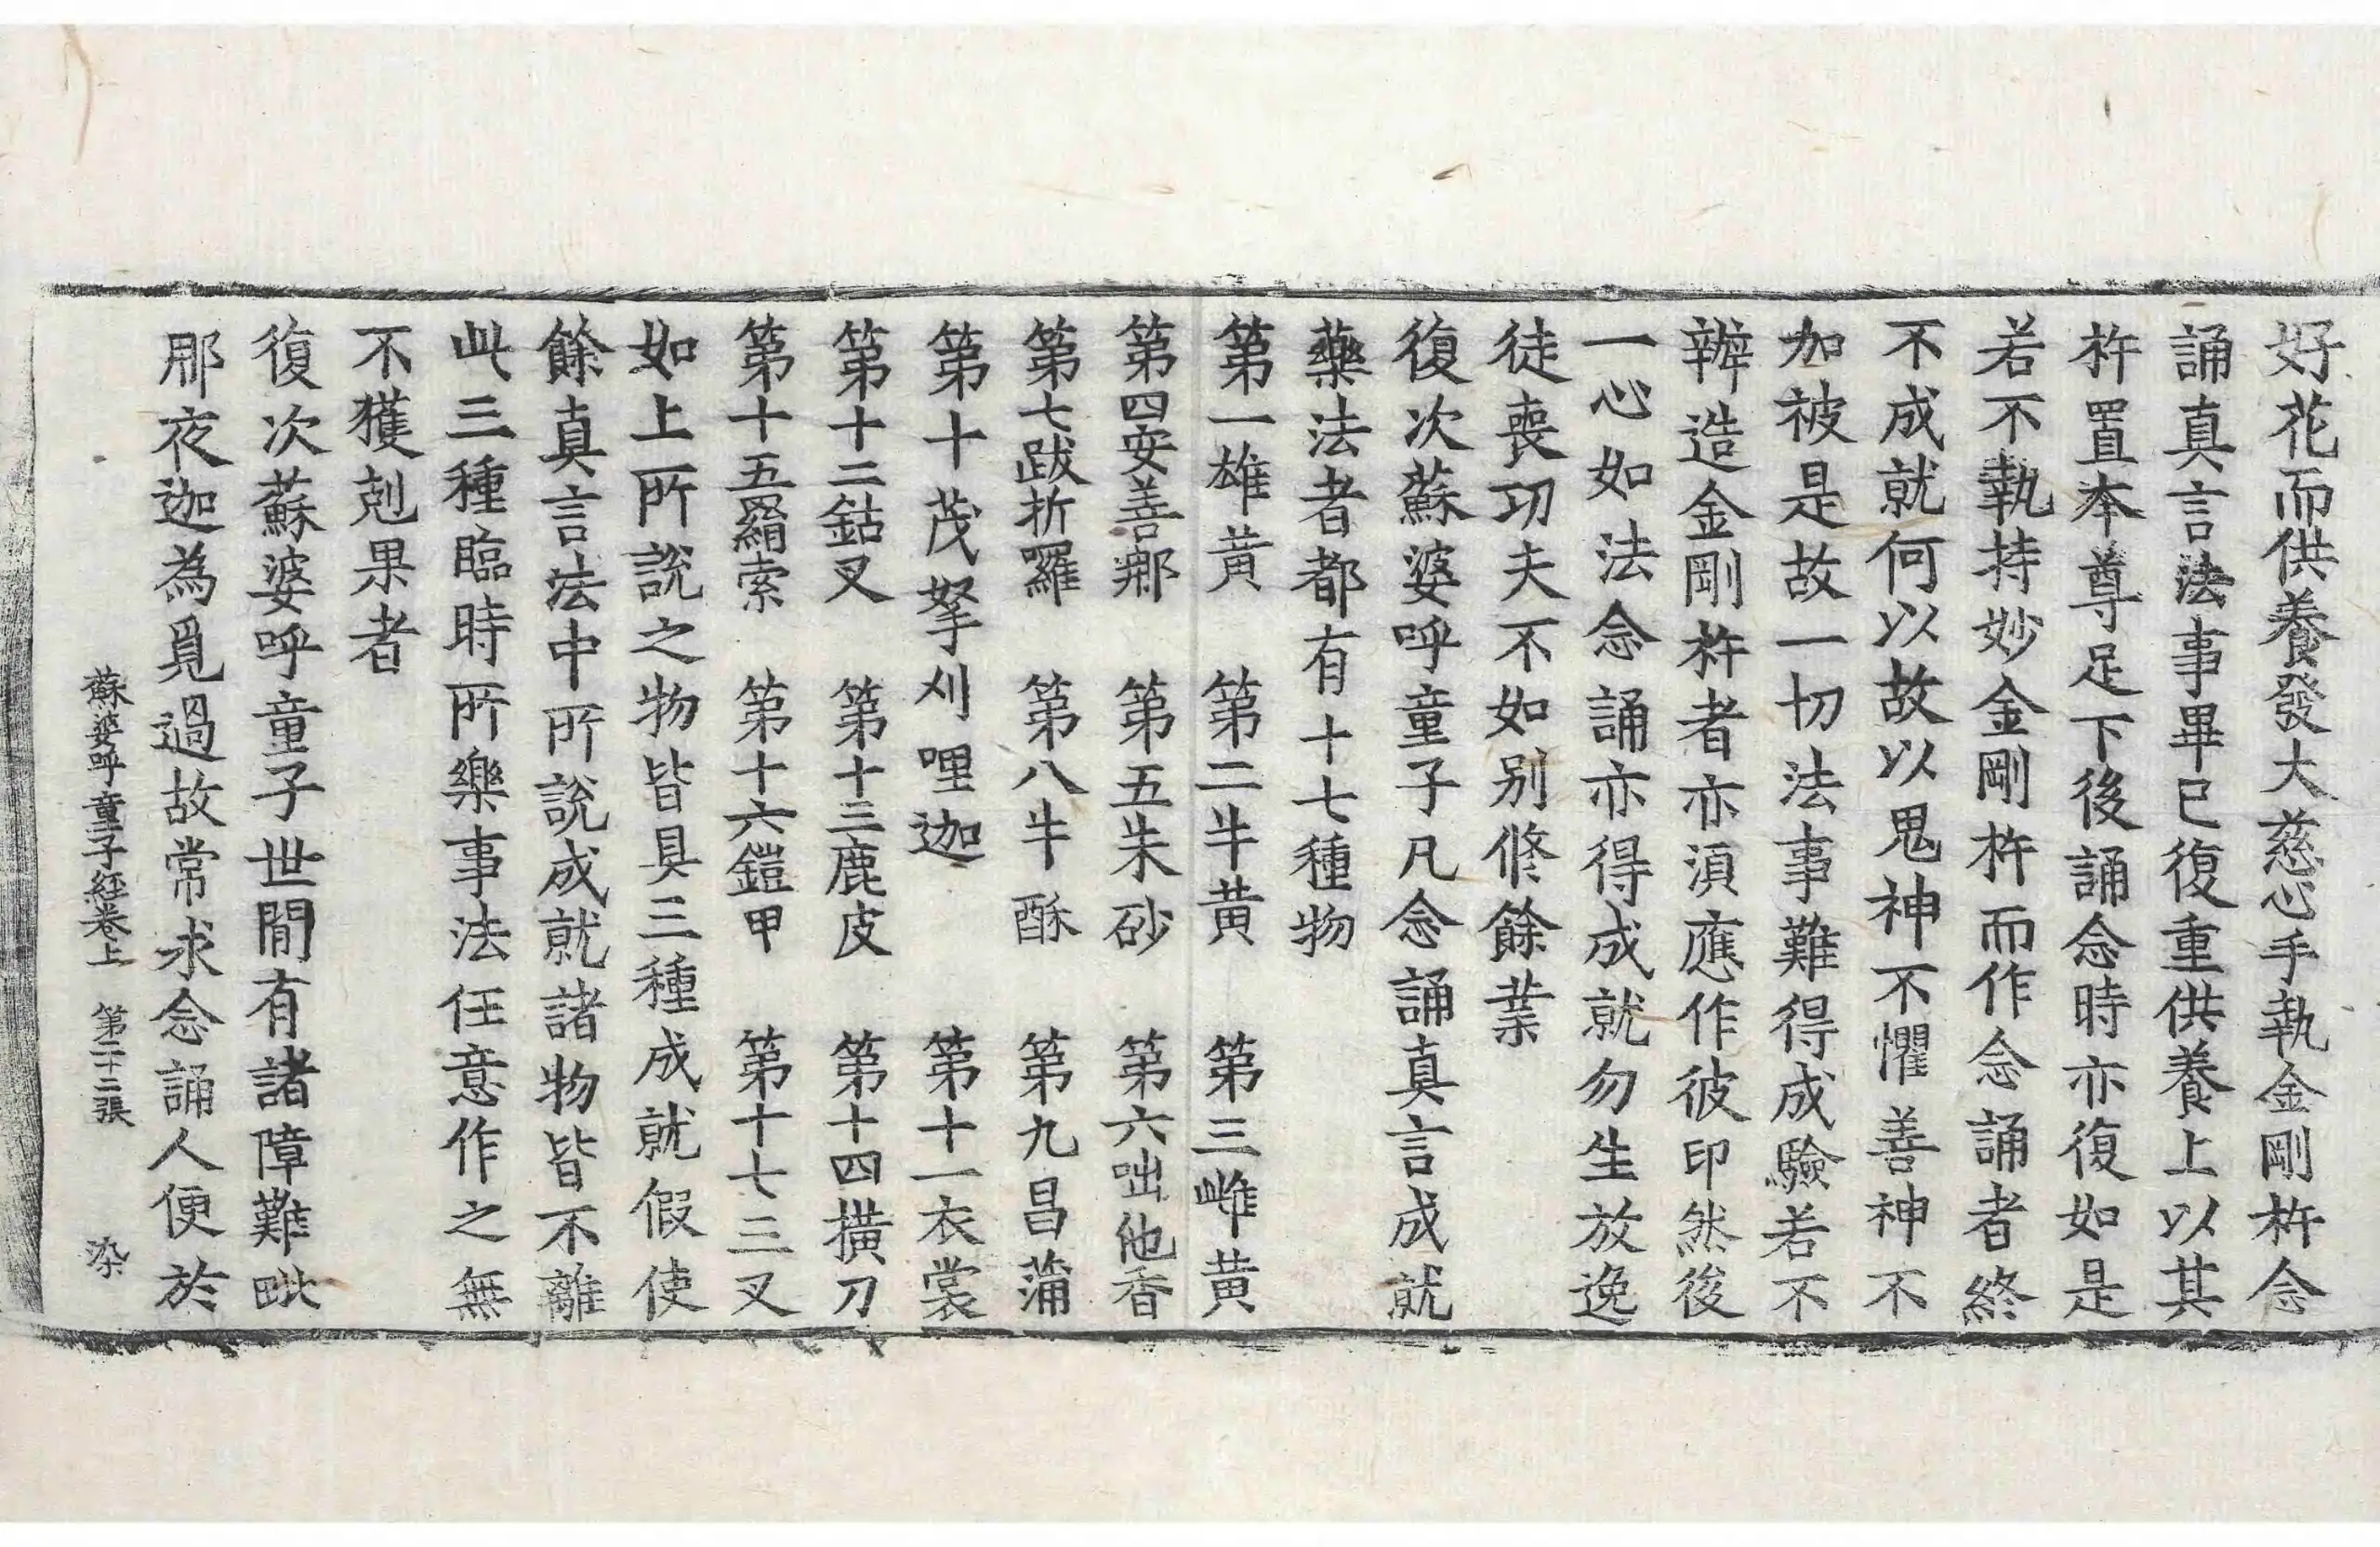 好花而供養發大慈心手執金剛杵念
誦真言法事畢已復重供養上以其
杵置本尊足下後誦念時亦復如是
若不執持妙金剛杵而作念誦者終
不成就何以故以鬼神不懼善神不
加被是故一切法事難得成驗若不
辦造金剛杵者亦湏應作彼印然後
一心如法念誦亦得成就勿生放逸
徒喪功夫不如別修餘業
復次蘇婆呼童子凡念誦真言成就
藥法者都有十七種物
第一雄黄 第二牛黄 第三雌黄
第四安善郍 第五朱砂 第六咄他香
第七跋折羅 第八牛酥 第九昌蒲
第十茂拏刈哩迦 第十一衣裳
第十二鈷叉 第十三鹿皮 第十四橫刀
第十五羂索 第十六鎧甲 第十七三叉
如上所說之物皆具三種成就假使
餘真言法中所說成就諸物皆不離
此三種臨時所樂事法任意作之無
不獲剋果者
復次蘇婆呼童子世間有諸障難毗
那夜迦為覓過故常求念誦人便於
蘇婆呼童子經卷上 第二十二張 染